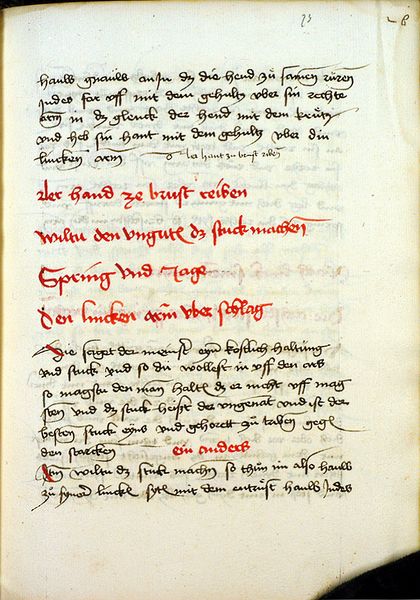 hauls gnauls an Im dz die hend zů samen růren
Indes far vff mit dem gehultz vber sin rechte
arm in dz glenck der hend mit dem krütz
und heb sin hant mit dem gehultz vber din
lincken arm
der hand ze brust reiben
wiltu den ungūtē dz stuck machen
Spring und Tage
den lincken arm vber schlag
die saget der meinstr eyn kostlich haltung
und stuck und so du wollest in vff den ars
so magstu den man haltē dz er nicht vff mag
sten und dz stuck heist der ungenāt und ist der
besten stuck eyns und gehorett zů traben gegē
den starcken
ein anders
Itm wiltu dz stuck machen so thůn im also hauls
zů syner linckē sytē mit dem entrüst hauls Indes